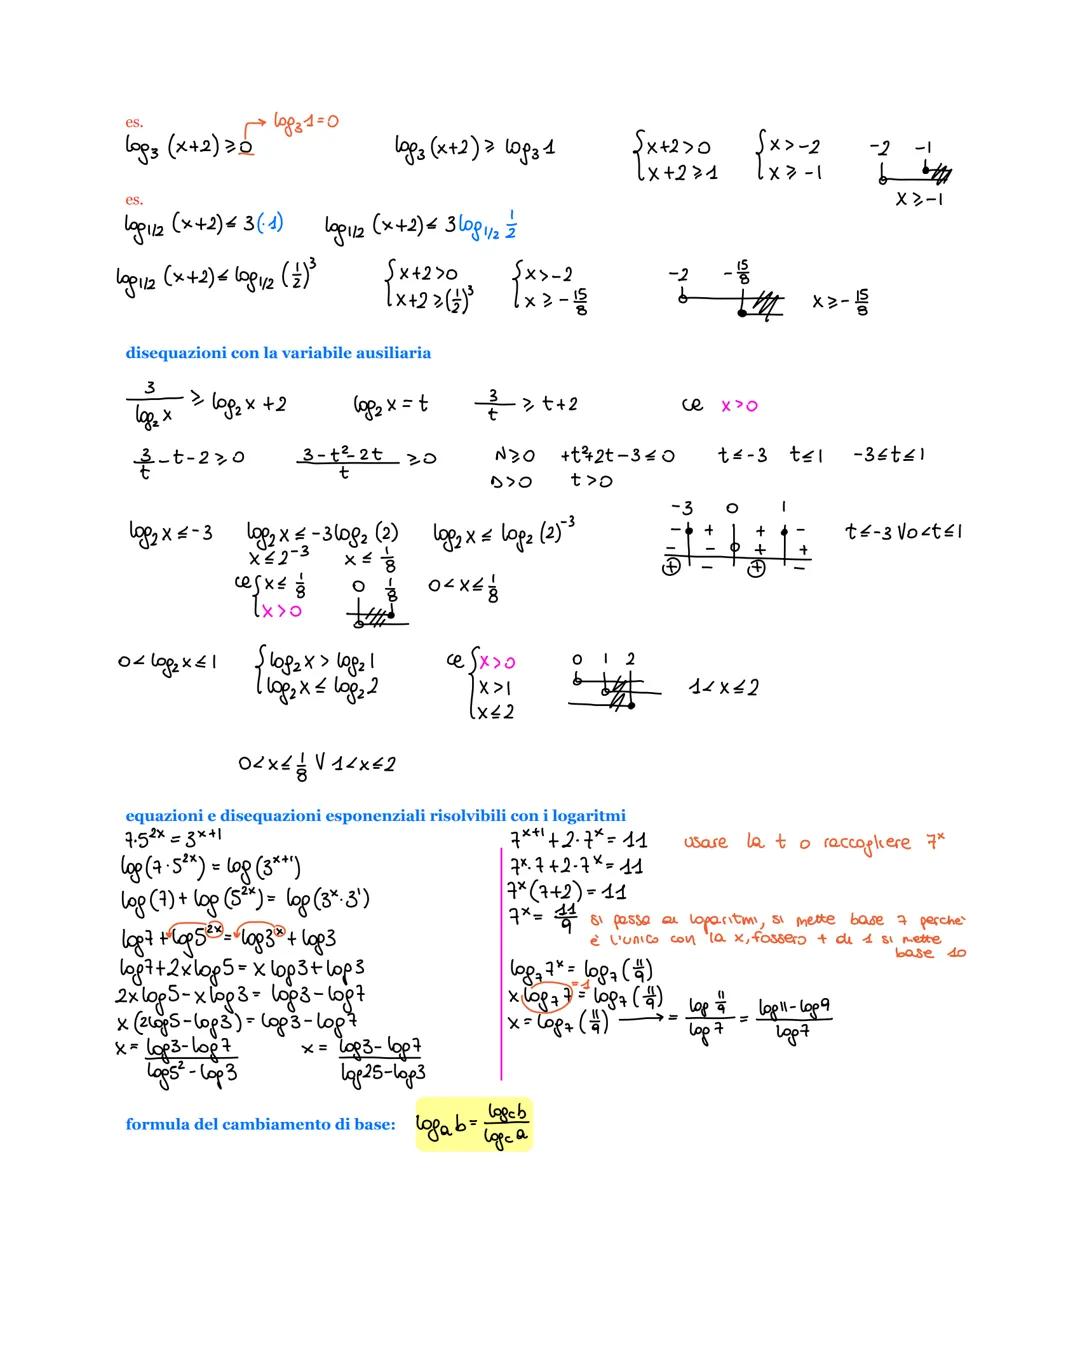 es.
→ log₃1=0
log₃ (x+2) ⩾ 0    log₃ (x+2) ⩾ log₃ 1    { x+2>0    { x>-2    -2 -1
x+2 ⩾ 1    x ⩾ -1
x ⩾ -1
es.
log1/2 (x+2) ≤ 3(·1)    log1/2 (x+2) ≤ 3 log1/2 1/2
log1/2 (x+2) ≤ log1/2 (1/2)³    { x+2>0    { x>-2    -2 -15/8
x+2 ⩾ (1/2)³    x ⩾ -15/8    x ⩾ -15/8
disequazioni con la variabile ausiliaria
3/log₂ x ⩾ log₂ x +2    log₂ x = t    3/t ⩾ t+2    ce x>0
3/t -t-2 ⩾ 0    (3-t²-2t)/t ⩾ 0    N ⩾ 0    +t²+2t-3 ≤ 0    t ≤ -3    t ≤ 1    -3 ≤ t ≤ 1
D>0    t>0
-3 0 1
log₂ x ≤ -3    log₂ x ≤ -3log₂ (2)    log₂ x ≤ log₂ (2)⁻³    - + + -    t ≤ -3 V 0<t ≤ 1
x ≤ 2⁻³    x ≤ 1/8    - - + +
+ - + -
ce { x ≤ 1/8    0 1/8    0<x ≤ 1/8
x>0
0< log₂ x ≤ 1    { log₂ x > log₂ 1    ce { x>0    0 1 2
log₂ x ≤ log₂ 2    x>1    1<x ≤ 2
x ≤ 2
0<x ≤ 1/8 V 1<x ≤ 2
equazioni e disequazioni esponenziali risolvibili con i logaritmi
7·5²ˣ = 3ˣ⁺¹
log (7·5²ˣ) = log (3ˣ⁺¹)
log (7) + log (5²ˣ) = log (3ˣ·3¹)
log7 + log5²ˣ = log3ˣ + log3
log7+2xlog5 = x log3 + log3
2xlog5-xlog3 = log3-log7
x (2log5-log3) = log3-log7
x = (log3-log7)/(log5²-log3)    x = (log3-log7)/(log25-log3)
7ˣ⁺¹ + 2·7ˣ = 11    usare la t o raccogliere 7ˣ
7ˣ·7+2·7ˣ = 11
7ˣ(7+2) = 11
7ˣ = 11/9    si passa ai logaritmi, si mette base 7 perche'
è l'unico con la x, fossero + di 1 si mette
base 10
log₇ 7ˣ = log₇ (11/9)
x log₇ 7 = log₇ (11/9)    =1
x = log₇ (11/9) → = (log 11/9)/(log 7) = (log11-log9)/(log7)
formula del cambiamento di base:    logₐ b = (log꜀ b)/(log꜀ a)